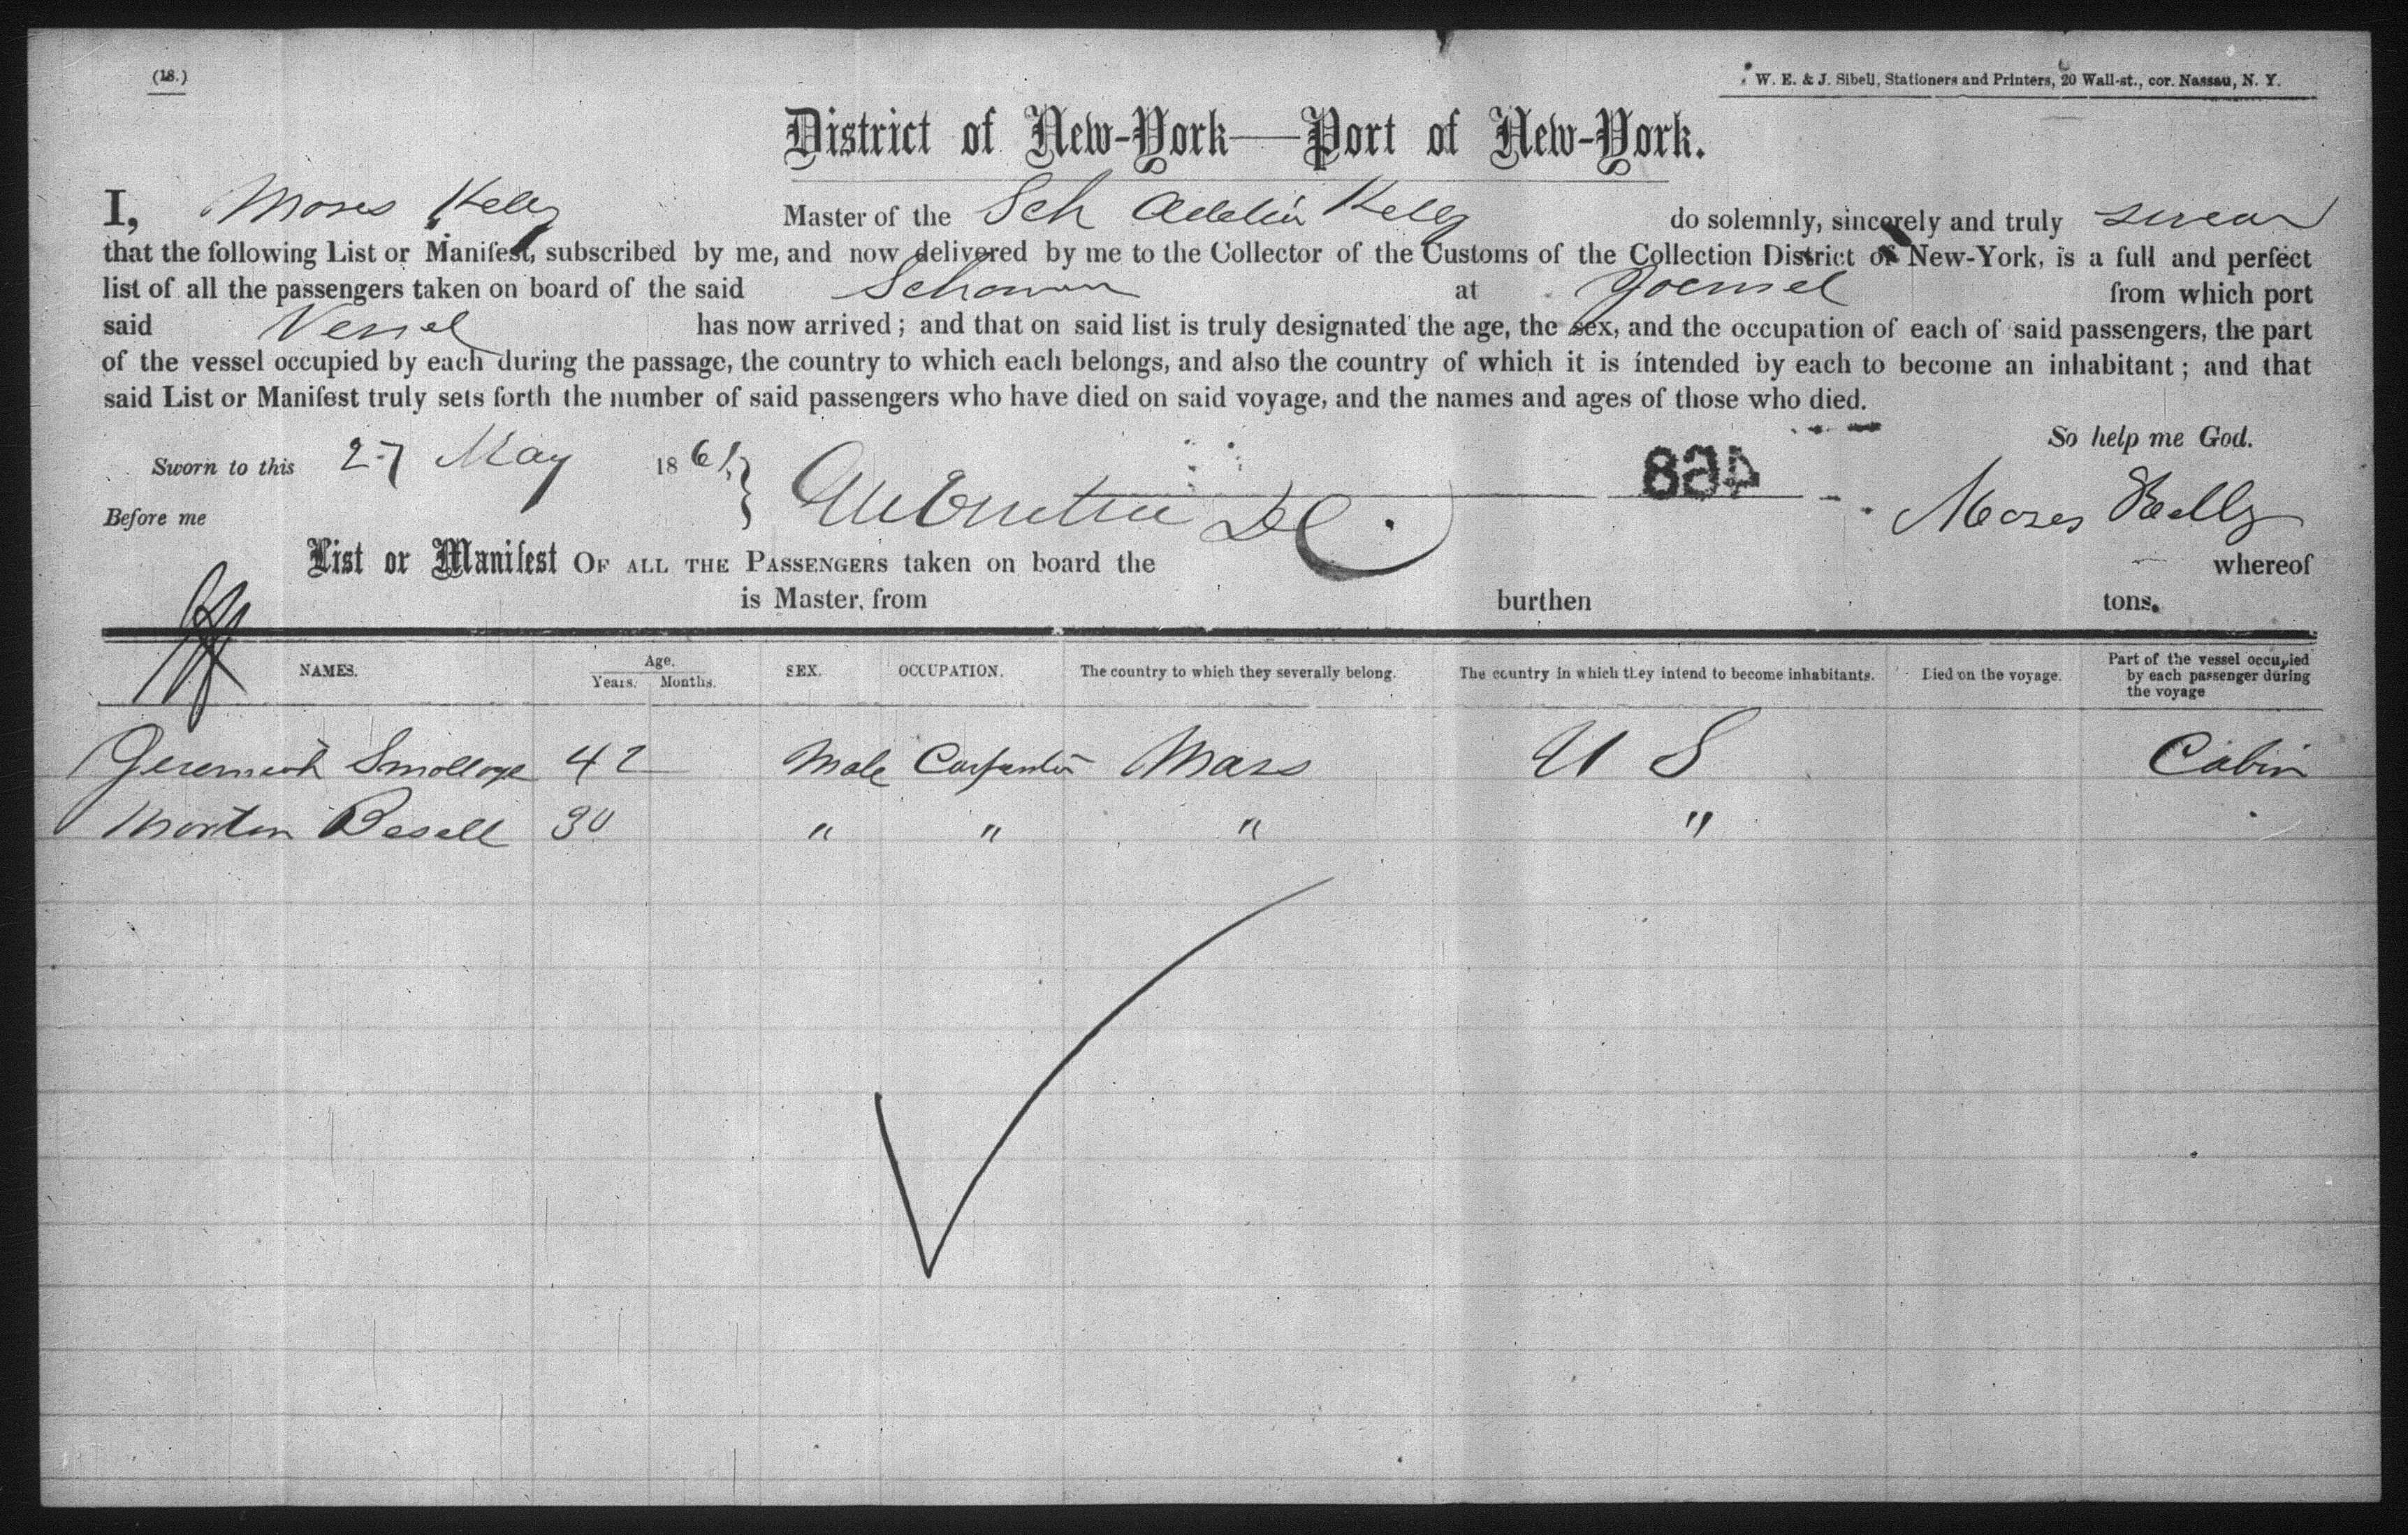 (18.)
W. E. & J. Sibell, Stationers and Printers, 20 Wall-st., cor. Nassau, N. Y.
District of New-York—Port of New-York.
I, Moses Kelly Master of the Sch Adelia Kelly do solemnly, sincerely and truly swear
that the following List or Manifest, subscribed by me, and now delivered by me to the Collector of the Customs of the Collection District of New-York, is a full and perfect
list of all the passengers taken on board of the said Schooner at from which port
said Vessel has now arrived; and that on said list is truly designated the age, the sex, and the occupation of each of said passengers, the part
of the vessel occupied by each during the passage, the country to which each belongs, and also the country of which it is intended by each to become an inhabitant; and that
said List or Manifest truly sets forth the number of said passengers who have died on said voyage, and the names and ages of those who died.
So help me God.
Sworn to this 27 May 1861. 468
Before me DC. Moses Kelly
List or Manifest OF ALL THE PASSENGERS taken on board the whereof
is Master, from burthen tons.
NAMES. Age. Years. Months. SEX. OCCUPATION. The country to which they severally belong. The country in which they intend to become inhabitants. Died on the voyage. Part of the vessel occupied by each passenger during the voyage
Jeremiah 42 Male Carpenter Mass U S Cabin
Morton Besell 30 " " " "